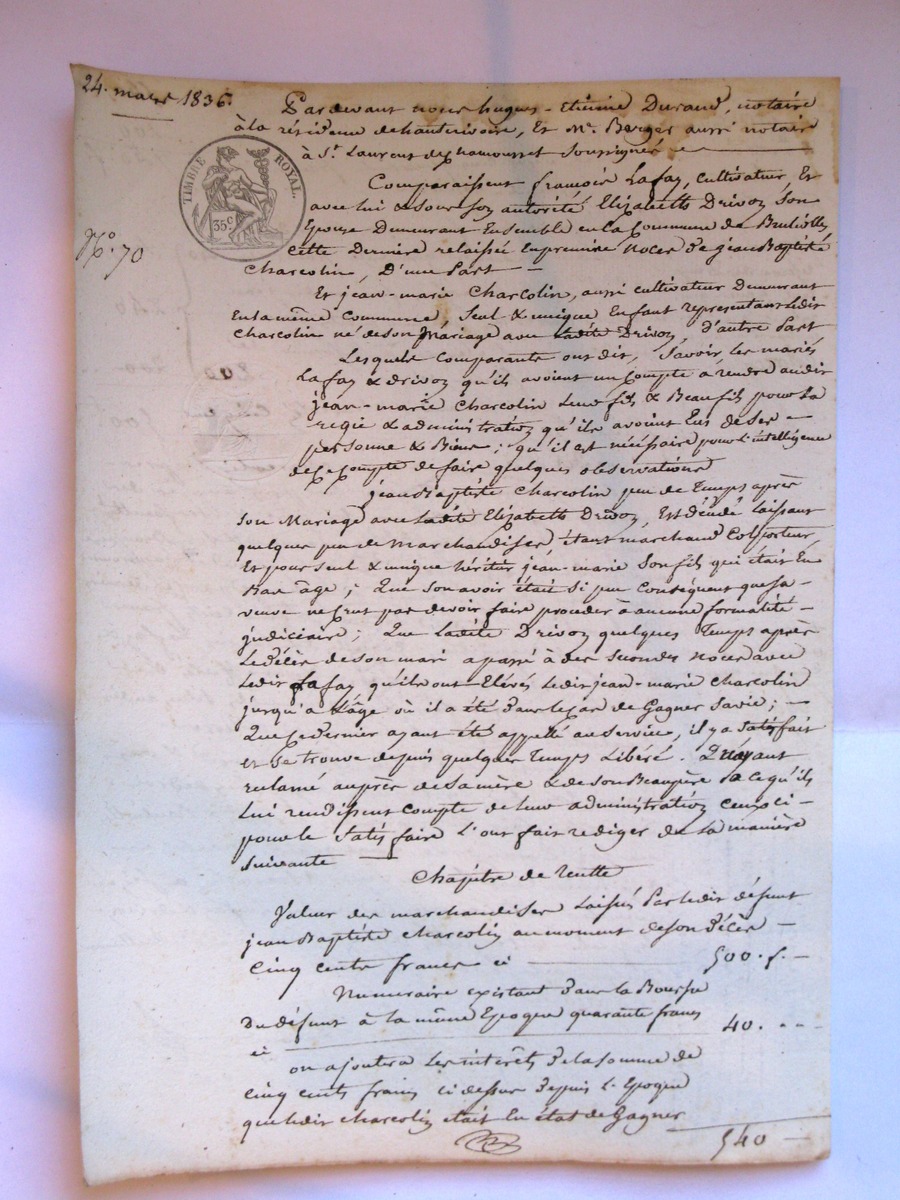 24. mars 1836.
Pardevant nous hugues-Etienne Durand, notaire
à la résidence de hauterivoire, Et Me. Berger aussi notaire
à St. Laurent de chamousset Soussignés
TIMBRE ROYAL.
35c.
No. 70
Comparaissent françois Lafay, cultivateur, Et
avec lui & sous son autorité Elizabeth Drivon Son
Epouse Demeurant Ensemble en la Commune de Brullioles,
cette Derniere relaissée En premiere Noces de jean Baptiste
Charcolin, D'une Part —
Et jean-marie Charcolin, aussi cultivateur Demeurant
En la même Commune, Seul & unique Enfant representant Ledit
Charcolin né de son Mariage avec Ladite Drivon, d'autre Part
Lesquels Comparants ont dit, Savoir, les mariés
Lafay & Drivon qu'ils avoient un Compte à rendre audit
jean-marie Charcolin Leur fils & Beaufils pour La
regie & administration qu'ils avoient Eus de ses —
personne & Biens ; qu'il est nécéssaire pour l'intelligence
de ce Compte de faire quelques observations
jean Baptiste Charcolin peu de Temps après
Son Mariage avec Ladite Elizabeth Drivon, Est décédé laissant
quelque peu de Marchandises étant marchand Colporteur,
Et pour seul & unique héritier jean-marie Son fils qui était En
Bas âge ; Que son avoir était si peu Conséquent que sa
veuve ne crut pas devoir faire proceder à aucune formalité —
judiciaire ; Que Ladite Drivon quelques Temps après
Le décès de son mari a passé à des secondes Noces avec
Ledit Lafay qu'ils ont Elévés Ledit jean-marie Charcolin
jusqu'a L'âge où il a été dans le cas de Gagner Sa vie ; —
Que ce dernier ayant été appellé au Service, il y a Satisfait
et se trouve depuis quelque Temps Libéré. Qu'ayant
reclamé auprès de sa mère & de son Beaupère à ce qu'ils
Lui rendissent Compte de Leur administration ceux ci —
pour le Satisfaire L'ont fait rediger de La manière
Suivante —
Chapitre de recette
Valeur des marchandises Laissées Par Ledit défunt
jean Baptiste Charcolin au moment de son décès —
Cinq cents francs ci — 500. f. —
Numeraire existant dans la Bourse
Du défunt à la même Epoque quarante francs
ci — 40. " "
on ajoutera Les intérêts de la somme de
Cinq cents francs ci dessus depuis L'Epoque
que Ledit Charcolin était En état de Gagner
540 —